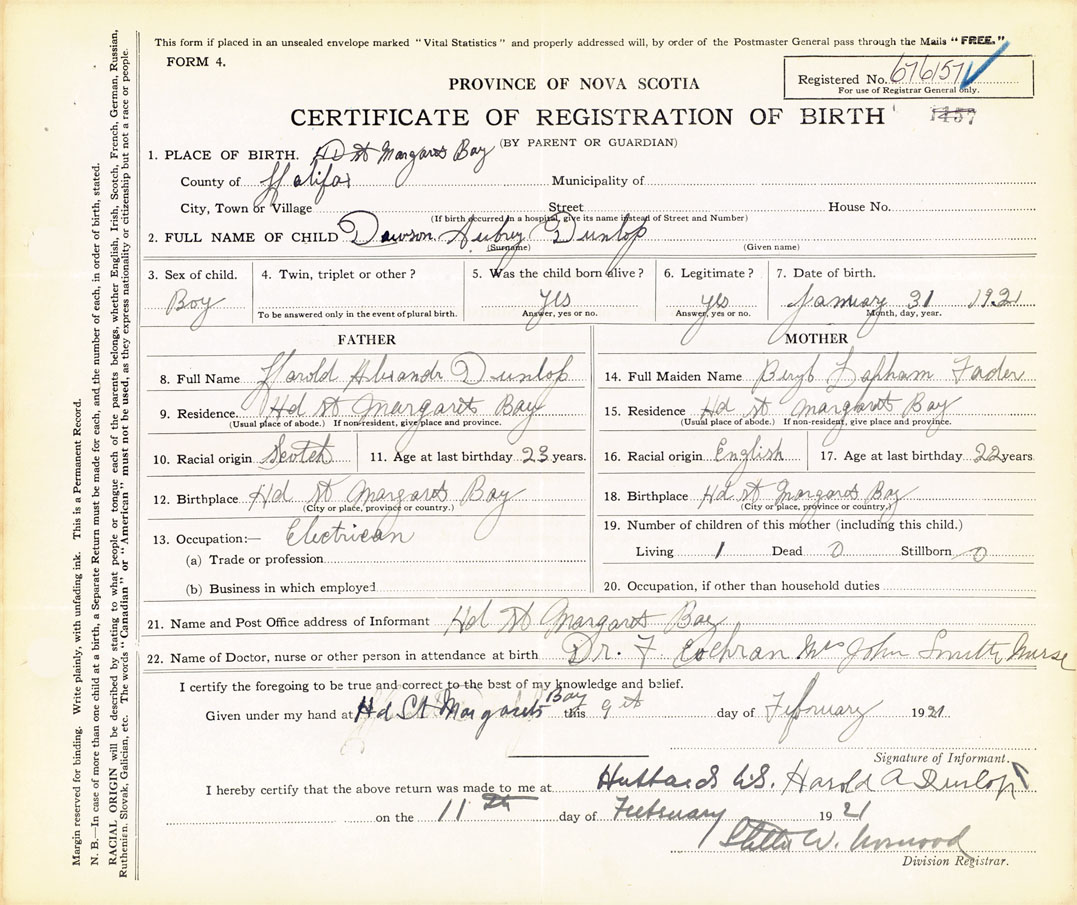 This form if placed in an unsealed envelope marked "Vital Statistics" and properly addressed will, by order of the Postmaster General pass through the Mails "FREE."
FORM 4.
Registered No. 676157
For use of Registrar General only.
PROVINCE OF NOVA SCOTIA
CERTIFICATE OF REGISTRATION OF BIRTH
(BY PARENT OR GUARDIAN)
1. PLACE OF BIRTH. Hd St Margarets Bay
County of Halifax Municipality of
City, Town or Village Street House No.
(If birth occurred in a hospital, give its name instead of Street and Number)
2. FULL NAME OF CHILD Dawson Aubry Dunlop
(Surname) (Given name)
3. Sex of child. 4. Twin, triplet or other? 5. Was the child born alive? 6. Legitimate? 7. Date of birth.
Boy yes yes January 31 1921
To be answered only in the event of plural birth. Answer, yes or no. Answer, yes or no. Month, day, year.
FATHER
8. Full Name Harold Dunlop
9. Residence. Hd St Margarets Bay
(Usual place of abode.) If non-resident, give place and province.
10. Racial origin Scotch 11. Age at last birthday 23 years.
12. Birthplace Hd St Margarets Bay
(City or place, province or country.)
13. Occupation:— Electrican
(a) Trade or profession
(b) Business in which employed
MOTHER
14. Full Maiden Name Lapham Fader
15. Residence Hd St Margarets Bay
(Usual place of abode.) If non-resident, give place and province.
16. Racial origin English 17. Age at last birthday 22 years
18. Birthplace Hd St Margarets Bay
(City or place, province or country.)
19. Number of children of this mother (including this child.)
Living 1 Dead 0 Stillborn 0
20. Occupation, if other than household duties
21. Name and Post Office address of Informant Hd St Margarets Bay
22. Name of Doctor, nurse or other person in attendance at birth Dr. F Cochran Mrs John Smith Nurse
I certify the foregoing to be true and correct to the best of my knowledge and belief.
Given under my hand at Hd St Margarets Bay this 9th day of February 1921
Signature of Informant.
I hereby certify that the above return was made to me at Hubbards Harold A Dunlop
on the 11th day of February 1921
W. Norwood
Division Registrar.
Margin reserved for binding. Write plainly, with unfading ink. This is a Permanent Record.
N. B.—In case of more than one child at a birth, a Separate Return must be made for each, and the number of each, in order of birth, stated.
RACIAL ORIGIN will be described by stating to what people or tongue each of the parents belongs, whether English, Irish, Scotch, French, German, Russian,
Ruthenian, Slovak, Galician, etc. The words "Canadian" or "American" must not be used, as they express nationality or citizenship but not a race or people.